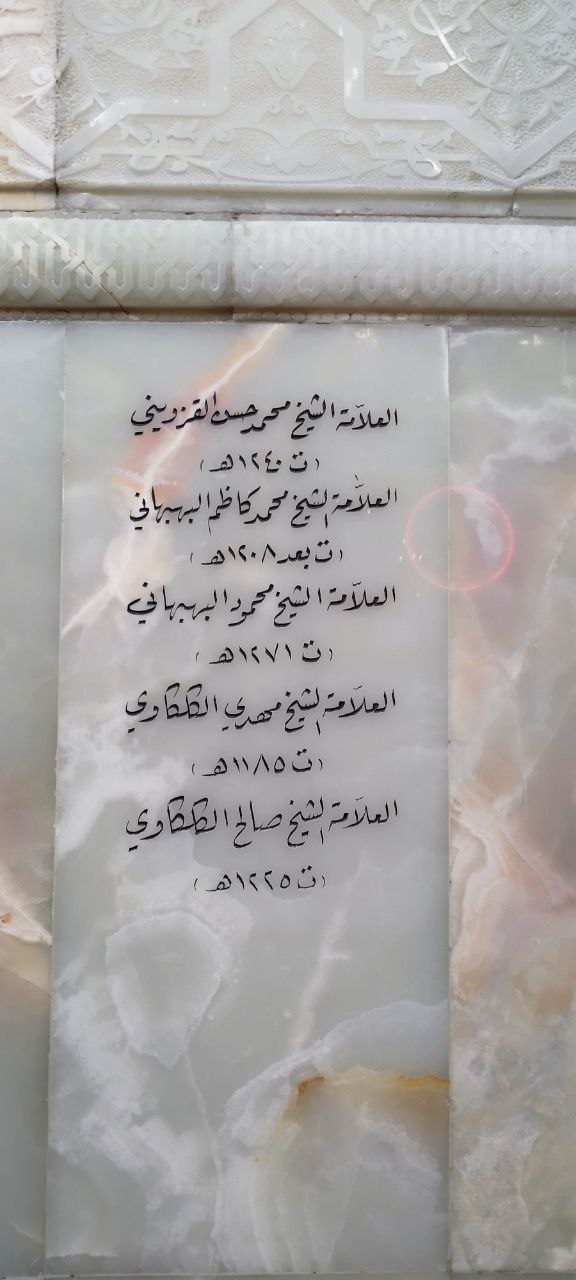 العلاّمة الشيخ محمد حسن القزويني
(ت ١٢٤٠هـ)
العلاّمة الشيخ محمد كاظم البهبهاني
(ت بعد ١٢٠٨هـ)
العلاّمة الشيخ محمود البهبهاني
(ت ١٢٧١هـ)
العلاّمة الشيخ مهدي الكلكاوي
(ت ١١٨٥هـ)
العلاّمة الشيخ صالح الكلكاوي
(ت ١٢٢٥هـ)